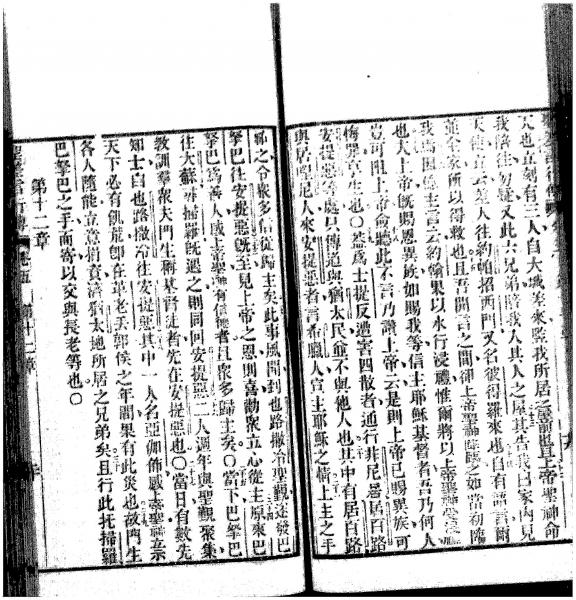 人也立刻有三人自大城差來臨我所居之室前也且上帝聖神命
我偕往勿疑又此六兄弟偕我入其人之屋其告我曰家內見
天使立云差人往約帕招西門又名彼得羅來也自有語言爾
並全家所以得救也且吾開言之間卻上帝聖神降臨之如當初臨
我
主言云約翰果以水行浸禮惟爾將以上帝聖神
也夫上帝既賜恩異族如賜我等信主耶穌基督者吾乃何人
豈可阻上帝命聽此不言乃讚上帝云是則上帝已賜異族可
悔罪享生也〇蓋為士提反遭害四散者通行非尼基居百路
安提惡等處只傳道與猶太民並不與他人也其中有居百路
與居呢尼人來安提惡者言希臘人宣主耶穌之情上主之手
祐之令眾多信從歸主矣此事風聞到也路撒冷聖觀遂發巴
拏巴往安提惡既至見上帝之恩則喜勸眾立心從主原來巴
拏巴為善人感上帝聖神有信德者且眾多歸主矣〇當下巴拏巴
往大蘇尋掃羅既遇之則同回安提惡二人週年與聖觀聚集
教訓羣眾夫門生稱基督徒者先在安提惡也〇當日有數先
知士自也路撒冷往安提惡其中一人名亞伽佛感上帝聖神立示
天下必有飢荒卽在革老丟郭侯之年間果有此災也故門生
各人隨能立意捐資濟猶太地所居之兄弟矣且行此托掃羅
巴拏巴之手而寄以交與長老等也〇
第十二章
第十二章